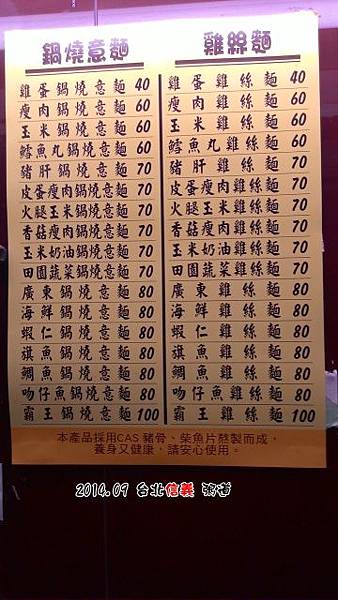 鍋燒意麵
雞蛋鍋燒意麵 40
瘦肉鍋燒意麵 60
玉米鍋燒意麵 60
鱈魚丸鍋燒意麵 60
豬肝鍋燒意麵 70
皮蛋瘦肉鍋燒意麵 70
火腿玉米鍋燒意麵 70
香菇瘦肉鍋燒意麵 70
玉米奶油鍋燒意麵 70
田園蔬菜鍋燒意麵 70
廣東鍋燒意麵 80
海鮮鍋燒意麵 80
蝦仁鍋燒意麵 80
旗魚鍋燒意麵 80
鯛魚鍋燒意麵 80
吻仔魚鍋燒意麵 80
霸王鍋燒意麵 100
雞絲麵
雞蛋雞絲麵 40
瘦肉雞絲麵 60
玉米雞絲麵 60
鱈魚丸雞絲麵 60
豬肝雞絲麵 70
皮蛋瘦肉雞絲麵 70
火腿玉米雞絲麵 70
香菇瘦肉雞絲麵 70
玉米奶油雞絲麵 70
田園蔬菜雞絲麵 70
廣東雞絲麵 80
海鮮雞絲麵 80
蝦仁雞絲麵 80
旗魚雞絲麵 80
鯛魚雞絲麵 80
吻仔魚雞絲麵 80
霸王雞絲麵 100
本產品採用CAS 豬骨、柴魚片熬製而成，
養身又健康，請安心使用。
2014.09 台北信義 粥道